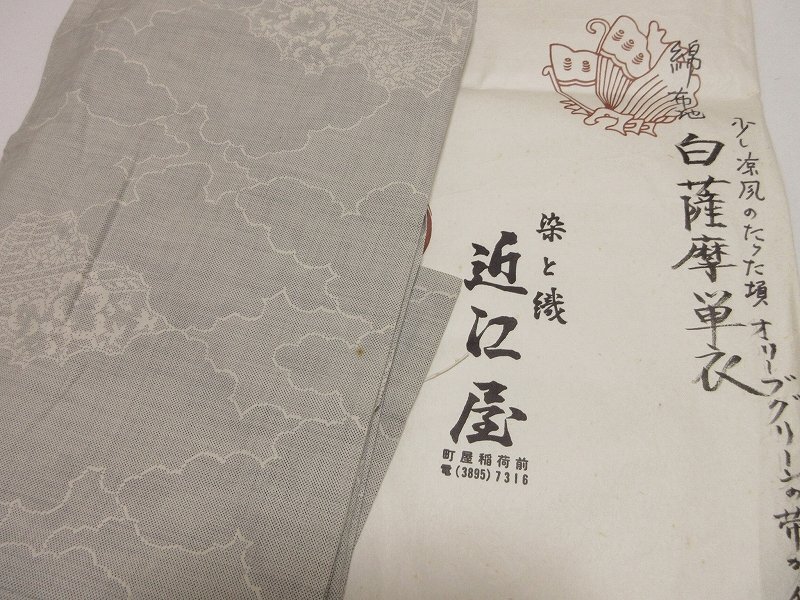 綿布地
白薩摩単衣
少し涼風のたった頃 オリーブグリーンの帯が
染と織
近江屋
町屋稲荷前
電(3895)7316